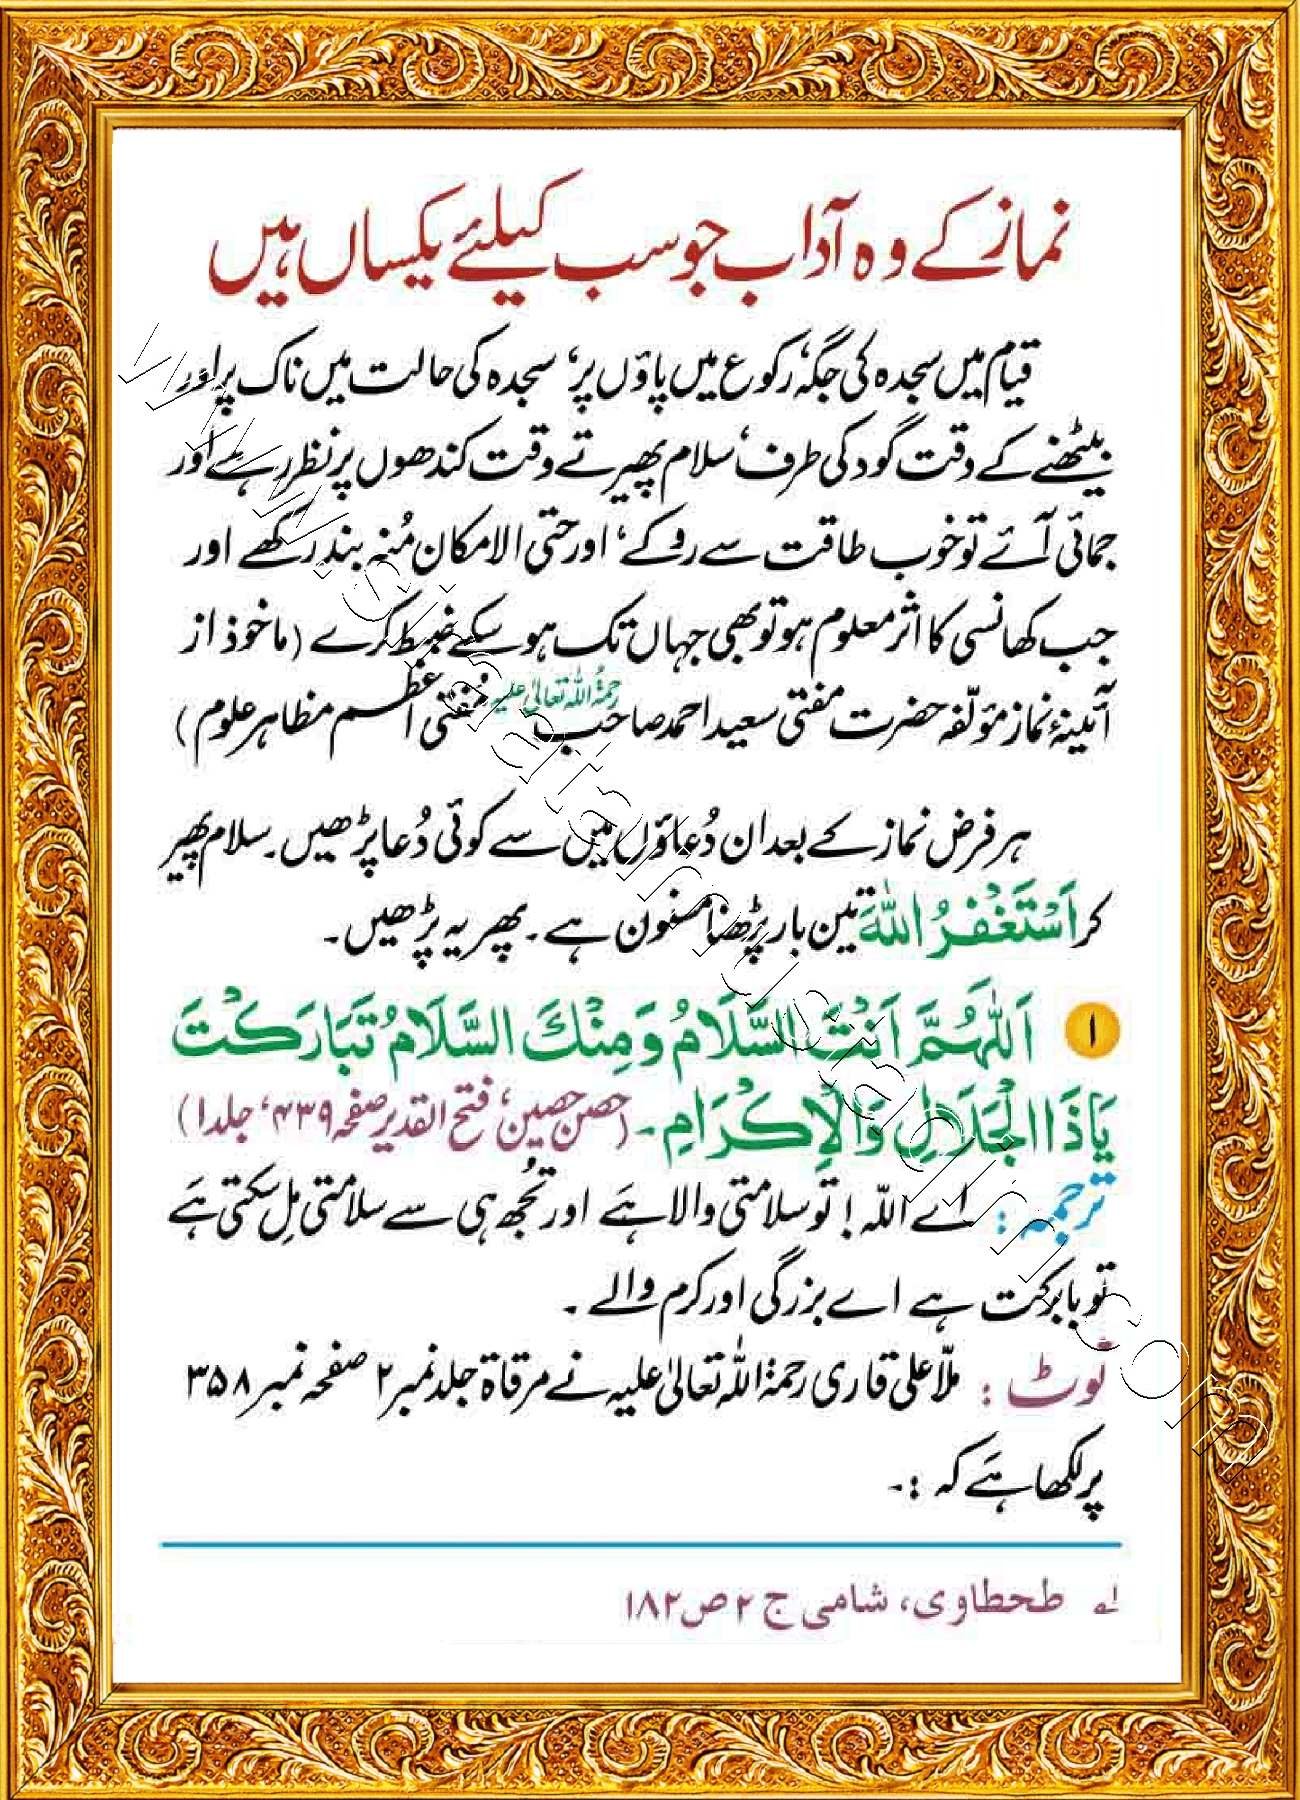 نماز کے وہ آداب جو سب کیلئے یکساں ہیں
قیام میں سجدہ کی جگہ، رکوع میں پاؤں پر، سجدہ کی حالت میں ناک پر اور
بیٹھنے کے وقت گود کی طرف، سلام پھیرتے وقت کندھوں پر نظر رہے اور
جمائی آئے تو خوب طاقت سے روکے، اور حتی الامکان مُنہ بند رکھے اور
جب کھانسی کا اثر معلوم ہو تو بھی جہاں تک ہو سکے ضبط کرے (ماخوذ از
آئینۂ نماز مؤلّفہ حضرت مفتی سعید احمد صاحب رحمۃُ اللہ تعالیٰ علیہ مُفتی اعظم مظاہر علوم)
ہر فرض نماز کے بعد ان دُعاؤں میں سے کوئی دُعا پڑھیں۔ سلام پھیر
کر اَسْتَغْفِرُ اللّٰهَ تین بار پڑھنا مسنون ہے۔ پھر یہ پڑھیں۔
۱ اَللّٰهُمَّ اَنْتَ السَّلَامُ وَمِنْكَ السَّلَامُ تَبَارَكْتَ
يَا ذَا الْجَلَالِ وَالْاِكْرَامِ۔ (حصن حصین، فتح القدیر صفحہ ۴۳۹، جلد ۱)
ترجمہ: اے اللہ! تو سلامتی والا ہے اور تُجھ ہی سے سلامتی مِل سکتی ہے
تو بابرکت ہے اے بزرگی اور کرم والے۔
نوٹ: ملّا علی قاری رحمۃ اللہ تعالیٰ علیہ نے مرقاۃ جلد نمبر ۲ صفحہ نمبر ۳۵۸
پر لکھا ہے کہ :۔
۱ے طحطاوی، شامی ج ۲ ص ۱۸۲
www.siratambustaqim.com